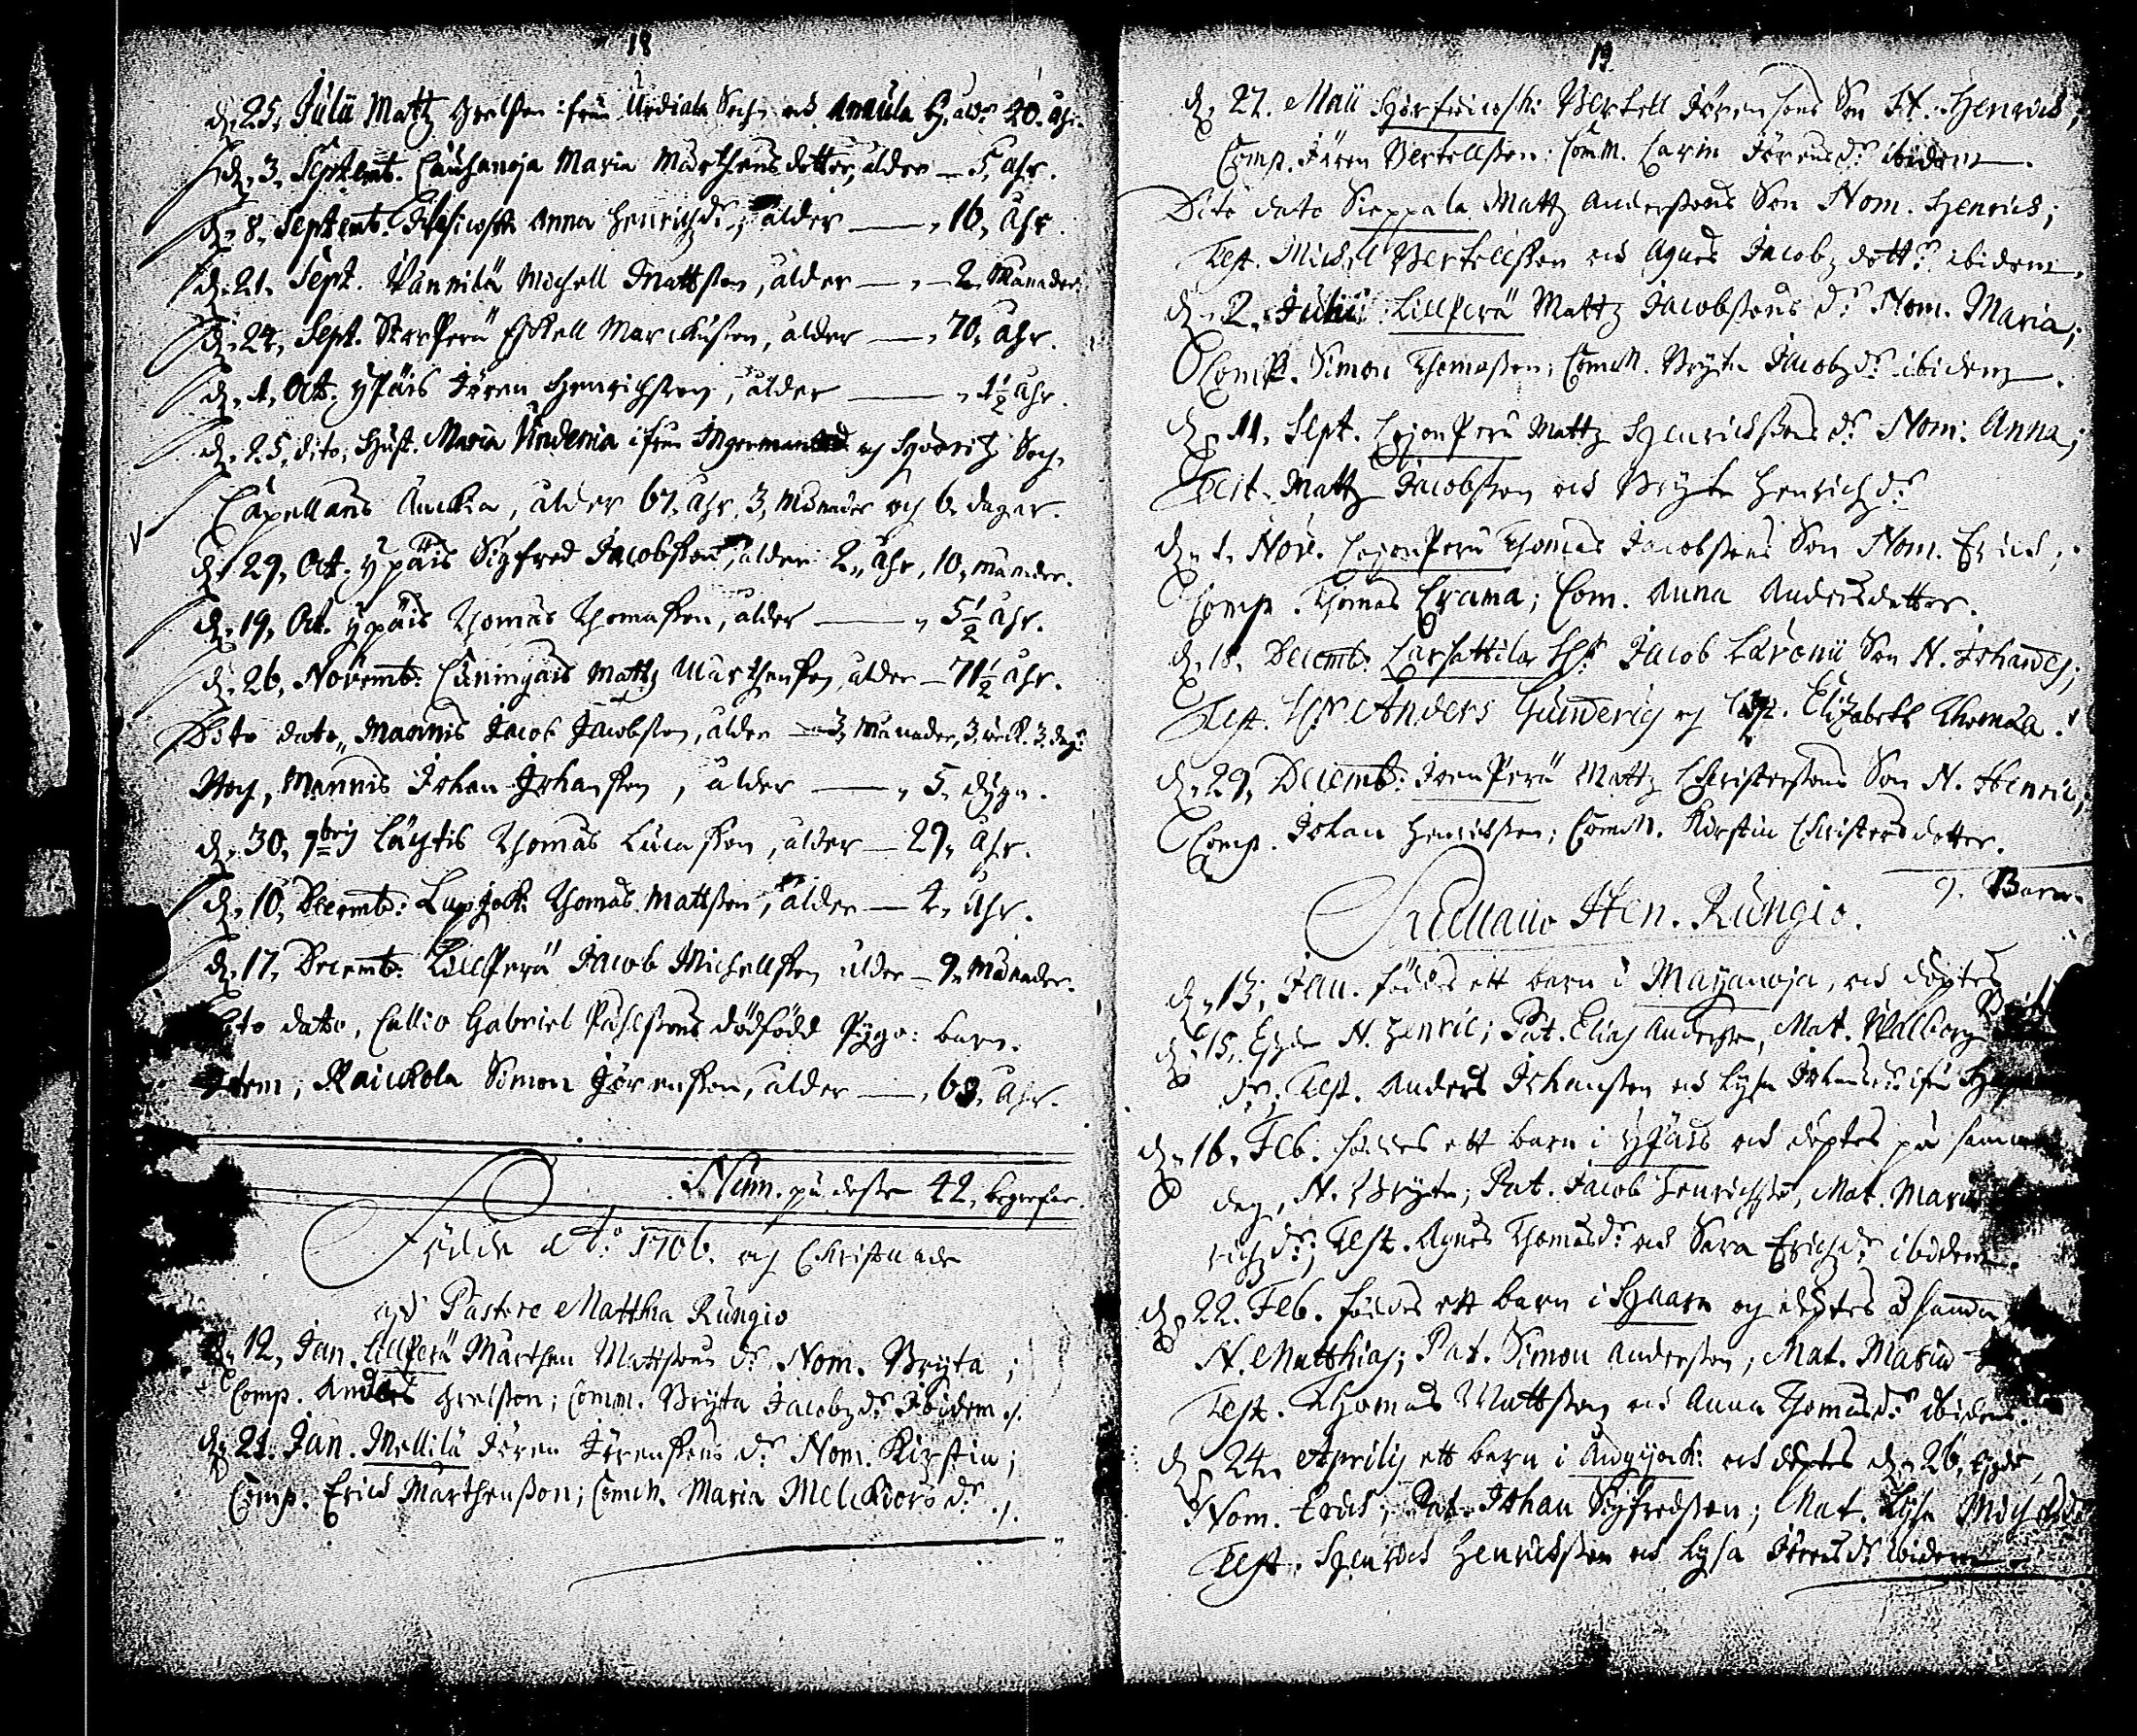 18
d. 25. Julii Mattz Grelsson ifrån Urdiala Sochn och Annula by, ald. 40. åhr.
d. 3. Septemb. Cauhanoja Maria Mårthensdotter, ålder — 5. åhr.
d. 8. Septemb. Anna Henrichzdr, ålder — 16. åhr.
d. 21. Sept. Vannilä Michell Mattsson, ålder — 2. Månader.
d. 24. Sept. StorPerü Eskell Marckusson, ålder — 70. åhr.
d. 1. Oct. Ypäis Jören Henrichsson, ålder — 1½ åhr.
d. 25. dito, Hust. Maria Vindenia ifrån Ingermanland och Sochn
Capellans Änckia, ålder 67. åhr, 3. Månader och 6. dagar.
d. 29. Oct. Ypäis Sigfred Jacobsson, ålder 2. åhr, 10. månader.
d. 19. Oct. Ypäis Thomas Thomasson, ålder — 5½ åhr.
d. 26. Novemb: Cuningais Mattz Mårthensson, ålder — 71½ åhr.
Dito dato, Mannis Jacob Jacobsson, ålder — 3. Månader, 3. veck. 3. dag:
Och, Mannis Johan Johansson, ålder — 5. dygn.
d. 30. 9bris Läytis Thomas Lucasson, ålder — 29. åhr.
d. 10. Decemb: Thomas Mattsson, ålder — 4. åhr.
d. 17. Decemb: LillPerü Jacob Michellsson ålder — 9. Månader.
dato, Callio Gabriel Påhlssons dödfödd Pygo: barn.
Item, Raickola Simon Jörensson, ålder — 63. åhr.
Num. på desse 42. begrafne.
Födde Ao. 1706. och Christnade
af Pastore Matthia Rungio
d. 12. Jan. LillPerü Mårthen Mattssons dr. Nom. Bryta;
Comp. Anders Grelsson; Comm. Bryta Jacobzdr Ibidem.
d. 21. Jan. Mellilä Jören Jörenssons dr Nom. Kirstin;
Comp. Erich Mårthensson; Comm. Maria Melckiorsdr.
19
d. 27. Maii Bertell Jörenssons Son N. Henrich;
Comp. Jören Bertellsson: Comm. Carin Jörensdr ibidem.
Dito dato Sieppala Mattz Anderssons Son Nom. Henrich;
Test. Michel Bertellsson och Agnes Jacobz dottr. ibidem.
d. 2. Julii LillPerü Mattz Jacobssons dr. Nom. Maria;
Comp. Simon Thomasson; Comm. Bryta Jacobzdr ibidem.
d. 11. Sept. LejonPerü Mattz Henrichssons dr Nom: Anna;
Test. Mattz Jacobsson och Bryta Henrichzdr
d. 1. Nov. LejonPerü Thomas Jacobssons Son Nom. Erich;
Comp. Thomas; Com. Anna Andersdotter.
d. 18. Decemb: Jacob Son N. Johannes;
Test. Hr Anders Gunderij och Elizabeth Thomæa.
d. 29. Decemb: IsonPerü Mattz Christerssons Son N. Henric;
Comp. Johan Henrichsson; Comm. Kirstin Christersdotter.
9. Barn.
Hen. Rungio.
d. 13. Jan. föddes ett barn i Mayanoja, och döptes
d. 15. Ejusdem N. Henric; Pat. Elias Andersson, Mat. Walborg
dr; Test. Anders Johansson och Lysa Johansdr
d. 16. Feb. föddes ett barn i Ypäis och döptes på samma
dag, N. Bryta; Pat. Jacob Henrichsson, Mat. Maria
richzdr; Test. Agnes Thomasdr och Sara Erichzdr ibidem.
d. 22. Feb. föddes ett barn i och döptes samma
N. Matthias; Pat. Simon Andersson; Mat. Maria
Test. Thomas Mattsson och Anna Thomasdr ibidem.
d. 24. Aprilis ett barn i och döptes d. 26. ejusd.
Nom. Erich; Pat. Johan Sigfredsson; Mat. Lysa
Test. Henrich Henrichsson och Lysa Jörensdr ibidem